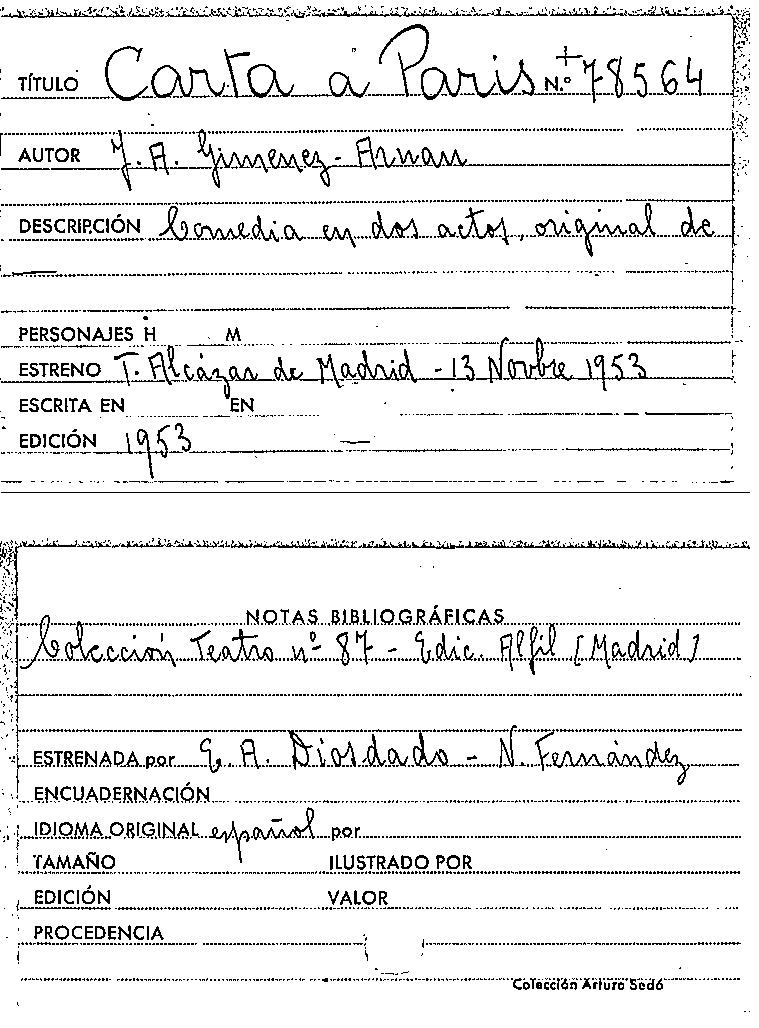 TÍTULO Carta a Paris N.º 78564
AUTOR J. A. Gimenez-Arnau
DESCRIPCIÓN Comedia en dos actos, original de
PERSONAJES H M
ESTRENO T. Alcázar de Madrid - 13 Novbre 1953
ESCRITA EN EN
EDICIÓN 1953
NOTAS BIBLIOGRÁFICAS
Colección Teatro nº 87 - Edic. Alfil (Madrid)
ESTRENADA por E. A. Diosdado - N. Fernández
ENCUADERNACIÓN
IDIOMA ORIGINAL español por
TAMAÑO ILUSTRADO POR
EDICIÓN VALOR
PROCEDENCIA
Colección Arturo Sedó